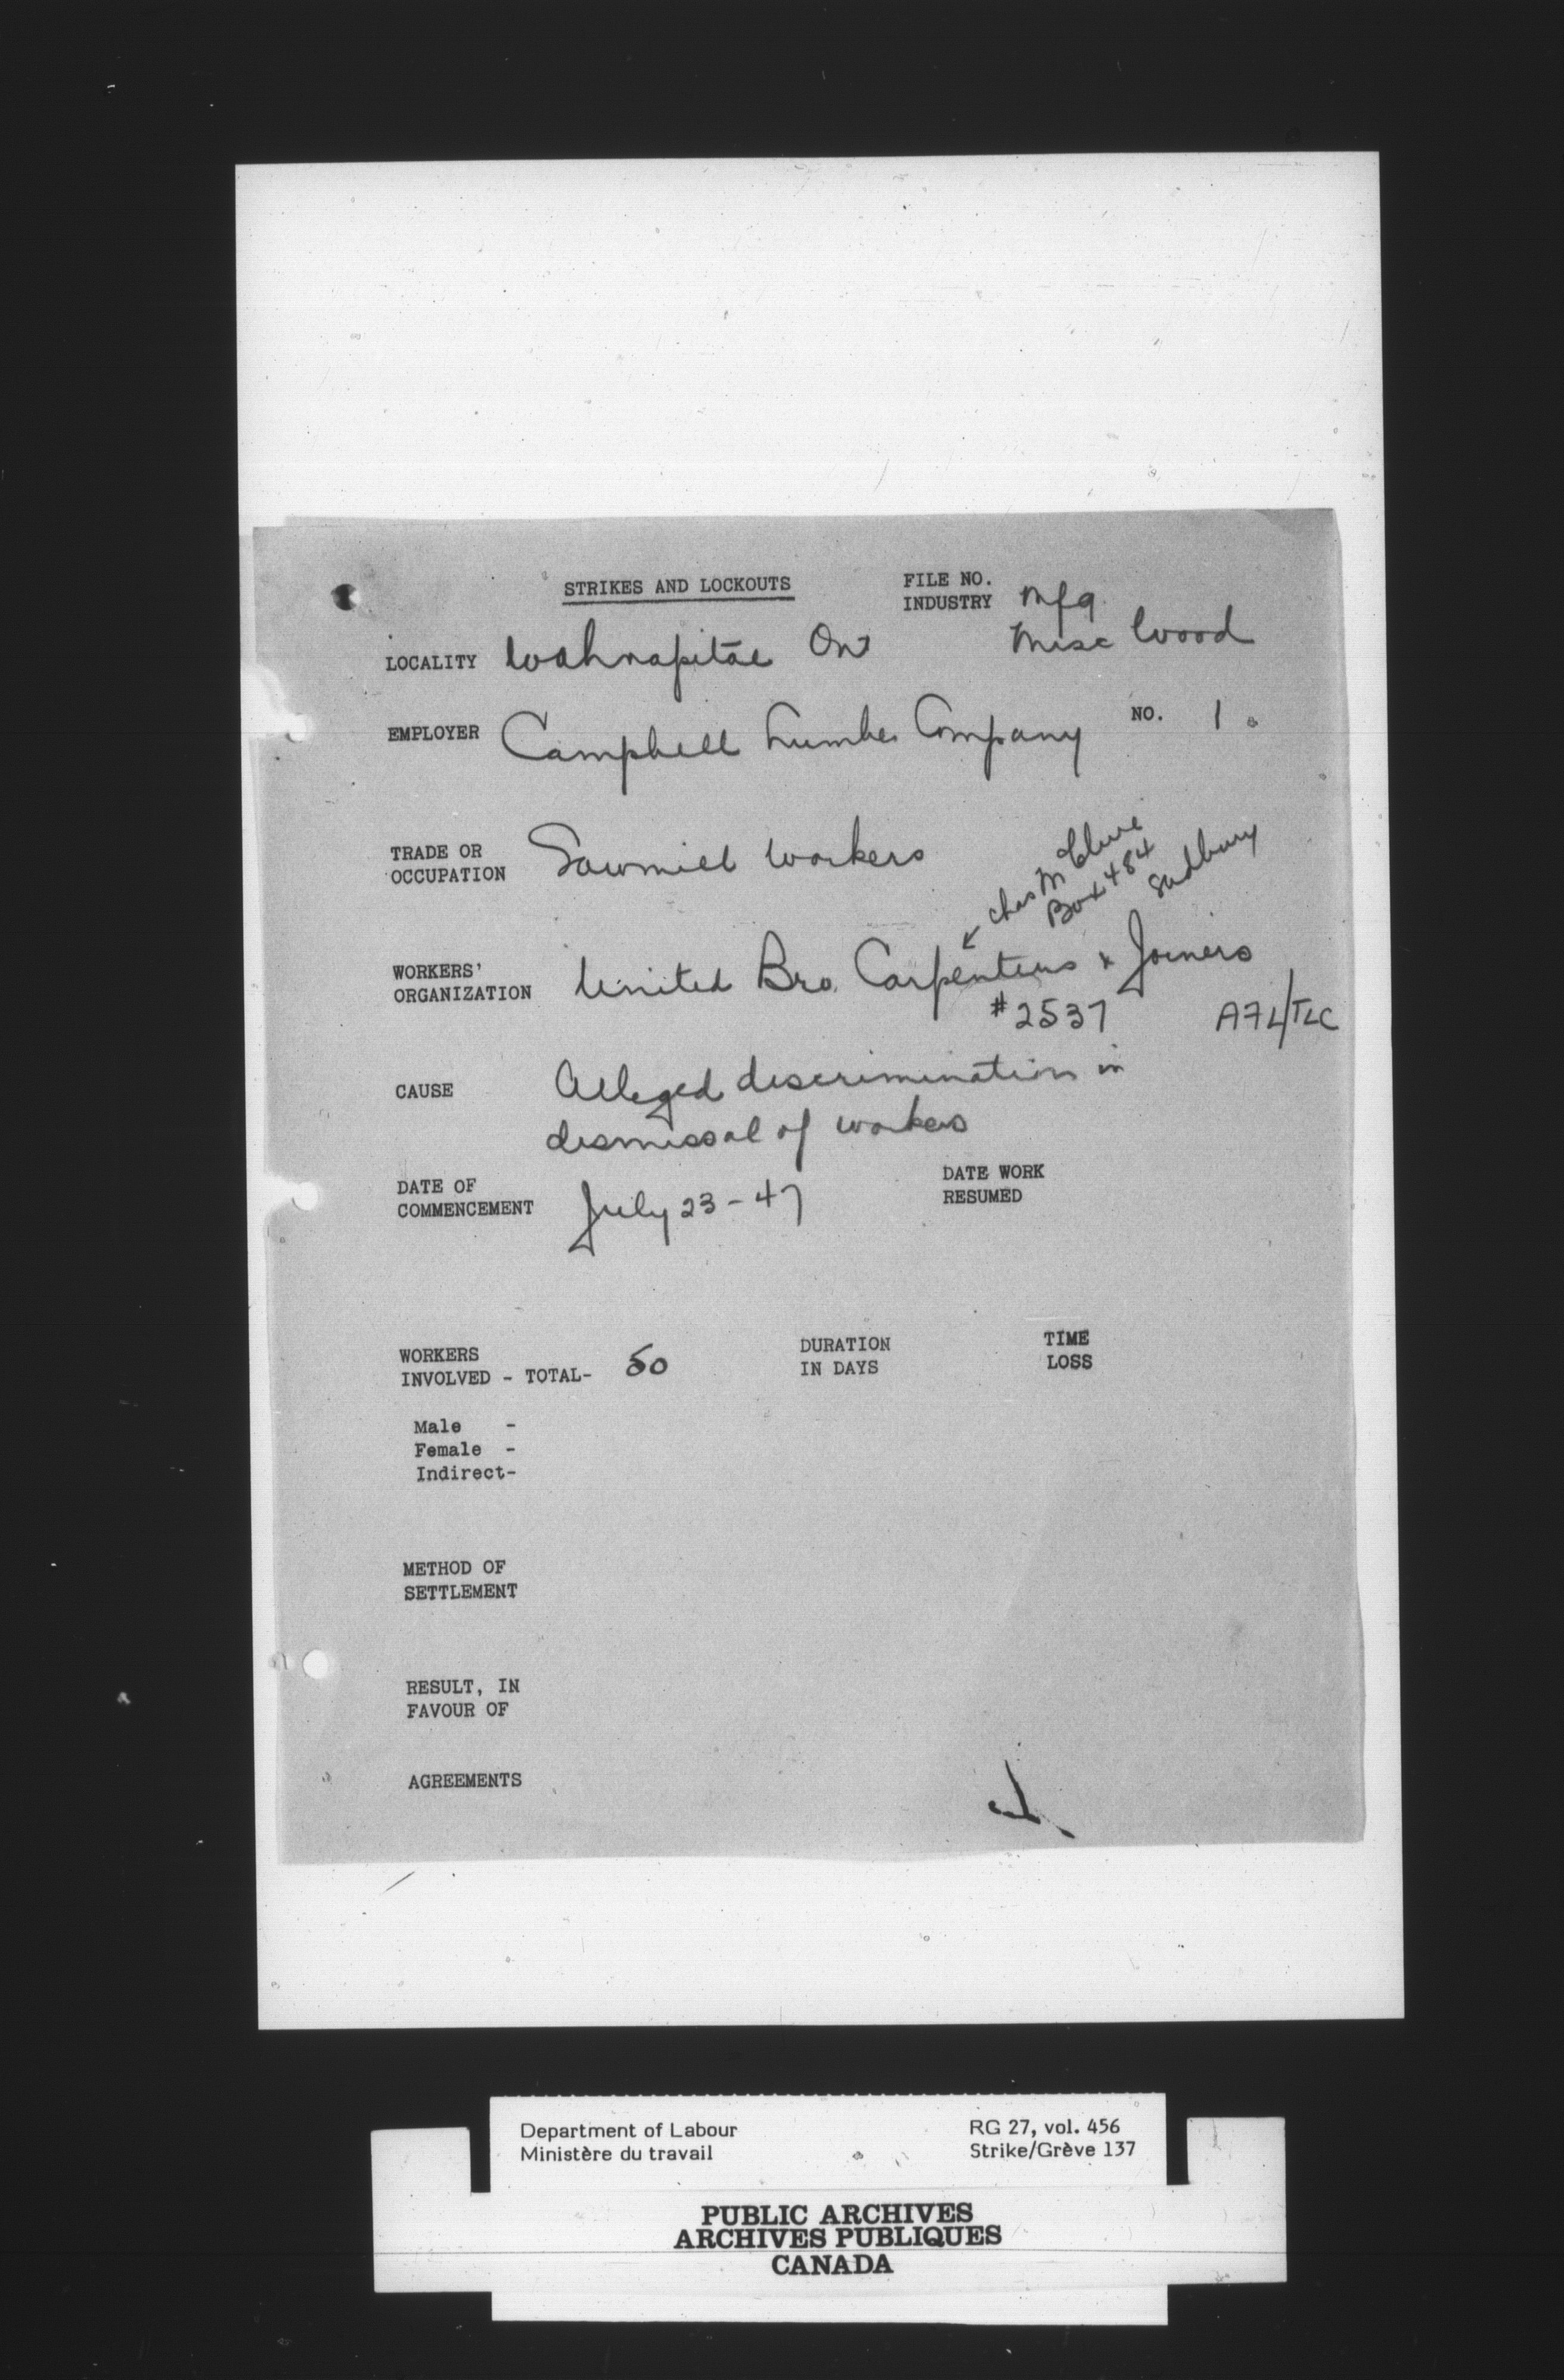 STRIKES AND LOCKOUTS
FILE NO.
INDUSTRY Mfg
Misc Wood
LOCALITY Wahnapitae Ont
EMPLOYER Campbell Lumber Company NO. 1
TRADE OR
OCCUPATION Sawmill Workers
Chas McClure
Box 484
Sudbury
WORKERS'
ORGANIZATION United Bro. Carpenters & Joiners
#2537 AFL/TLC
CAUSE Alleged discrimination in
dismissal of workers
DATE OF
COMMENCEMENT July 23-47
DATE WORK
RESUMED
WORKERS
INVOLVED - TOTAL- 50
DURATION
IN DAYS
TIME
LOSS
Male -
Female -
Indirect-
METHOD OF
SETTLEMENT
RESULT, IN
FAVOUR OF
AGREEMENTS
Department of Labour
Ministère du travail
RG 27, vol. 456
Strike/Grève 137
PUBLIC ARCHIVES
ARCHIVES PUBLIQUES
CANADA